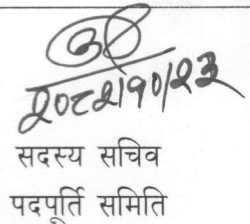 २०८२।१०।२३
सदस्य सचिव
पदपूर्ति समिति